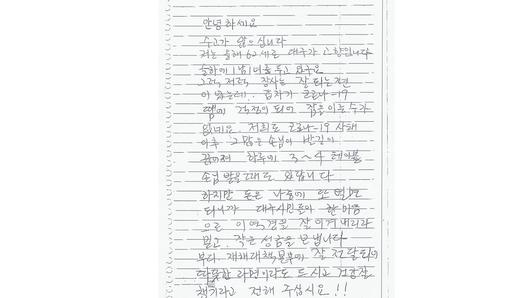 안녕하세요
수고가 많으십니다
저는 올해 62세로 대구가 고향입니다
슬하에 1남 1녀를 두고 있구요
그럭저럭 장사는 잘 되는 편
이었는데, 갑자기 코로나-19
땜에 걱정이 되어 잠을 이룰 수가
없네요. 저희도 코로나-19 사태
이후 그 많던 손님이 발길이
끊어져 하루에 3~4 테이블
손님 받을 때도 있답니다
하지만 돈은 나중에 또 벌면
되니까 대구시민 모아 한마음
으로 이 역경을 잘 이겨내리라
믿고, 작은 성금을 보냅니다
부디 재해대책본부에 잘 전달되어
따뜻한 라면이라도 드시고 건강 잘
챙기라고 전해 주십시요!!